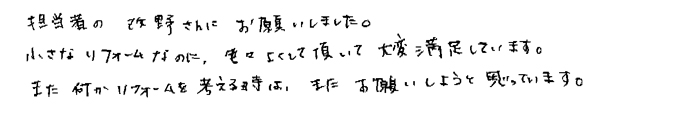 担当者の 牧野さんに お願いしました。
小さなリフォームなのに、色々よくして頂いて 大変満足しています。
また何かリフォームを考える時は、また お願いしようと思っています。